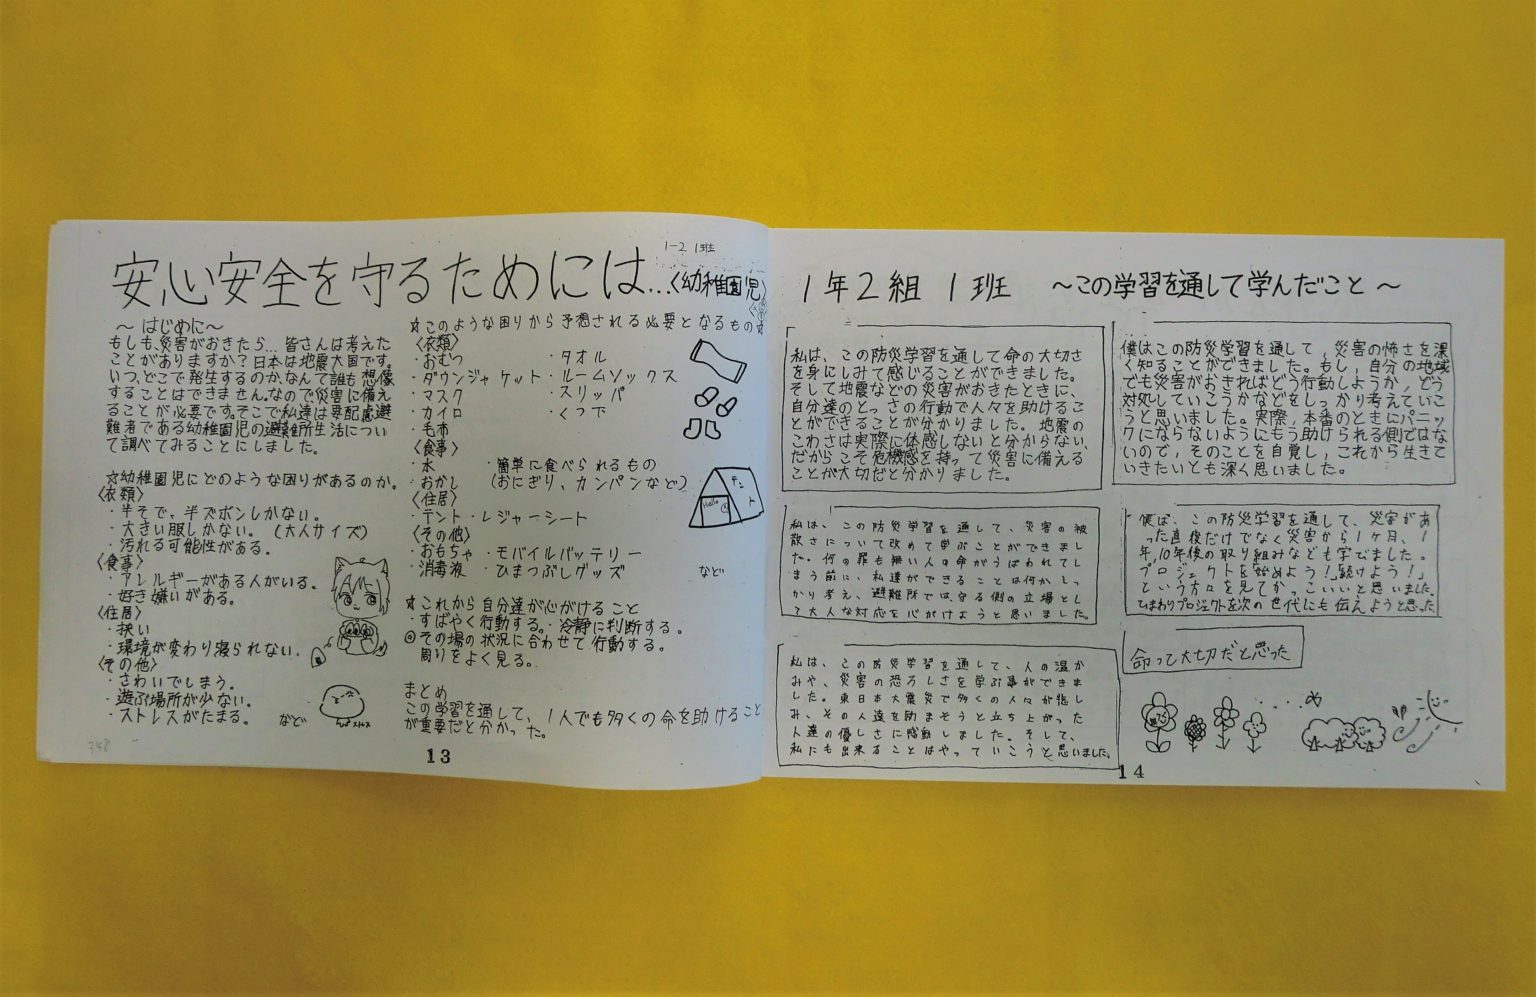 1-2 1班
安心安全を守るためには…〈幼稚園児〉
～はじめに～
もしも、災害がおきたら…皆さんは考えた
ことがありますか?日本は地震大国です。
いつ、どこで発生するのか、なんて誰も想像
することはできません。なので災害に備え
ることが必要です。そこで私達は要配慮避
難者である幼稚園児の避難所生活につい
て調べてみることにしました。
☆幼稚園児にどのような困りがあるのか。
〈衣類〉
・半そで、半ズボンしかない。
・大きい服しかない。(大人サイズ)
・汚れる可能性がある。
〈食事〉
・アレルギーがある人がいる。
・好き嫌いがある。
〈住居〉
・狭い
・環境が変わり寝られない。
〈その他〉
・さわいでしまう。
・遊ぶ場所が少ない。
・ストレスがたまる。 など
☆このような困りから予想される必要となるもの☆
〈衣類〉
・おむつ ・タオル
・ダウンジャケット・ルームソックス
・マスク ・スリッパ
・カイロ ・くつ下
・毛布
〈食事〉
・水 ・簡単に食べられるもの
・おかし (おにぎり、カンパンなど)
〈住居〉
・テント・レジャーシート
〈その他〉
・おもちゃ ・モバイルバッテリー
・消毒液 ・ひまつぶしグッズ など
テント
Hello
☆これから自分達が心がけること
・すばやく行動する。・冷静に判断する。
◎その場の状況に合わせて行動する。
周りをよく見る。
まとめ
この学習を通して、1人でも多くの命を助けること
が重要だと分かった。
13
1年2組 1班 ～この学習を通して学んだこと～
私は、この防災学習を通して命の大切さ
を身にしみて感じることができました。
そして地震などの災害がおきたときに、
自分達のとっさの行動で人々を助けるこ
とができることが分かりました。地震の
こわさは実際に体感しないと分からない。
だからこそ危機感を持って災害に備える
ことが大切だと分かりました。
私は、この防災学習を通して、災害の被
散さについて改めて学ぶことができまし
た。何の罪も無い人の命がうばわれてし
まう前に、私達ができることは何かしっ
かり考え、避難所では守る側の立場とし
て大人な対応を心がけようと思いました。
私は、この防災学習を通して、人の温か
みや、災害の恐ろしさを学ぶ事ができま
した。東日本大震災で多くの人々が悲し
み、その人達を励まそうと立ち上がった
人達の優しさに感動しました。そして、
私にも出来ることはやっていこうと思いました。
僕はこの防災学習を通して、災害の怖さを深
く知ることができました。もし、自分の地域
でも災害がおきればどう行動しようか、どう
対処していこうかなどをしっかり考えていこ
うと思いました。実際、本番のときにパニッ
クにならないようにもう助けられる側ではな
いので、そのことを自覚し、これから生きて
いきたいとも深く思いました。
僕は、この防災学習を通して、災害があ
った直後だけでなく災害から1ヶ月、1
年、10年後の取り組みなども学びました。
プロジェクトを「始めよう!」「続けよう!」
という方々を見てかっこいいと思いました。
ひまわりプロジェクトを次の世代にも伝えようと思った
命って大切だと思った
14